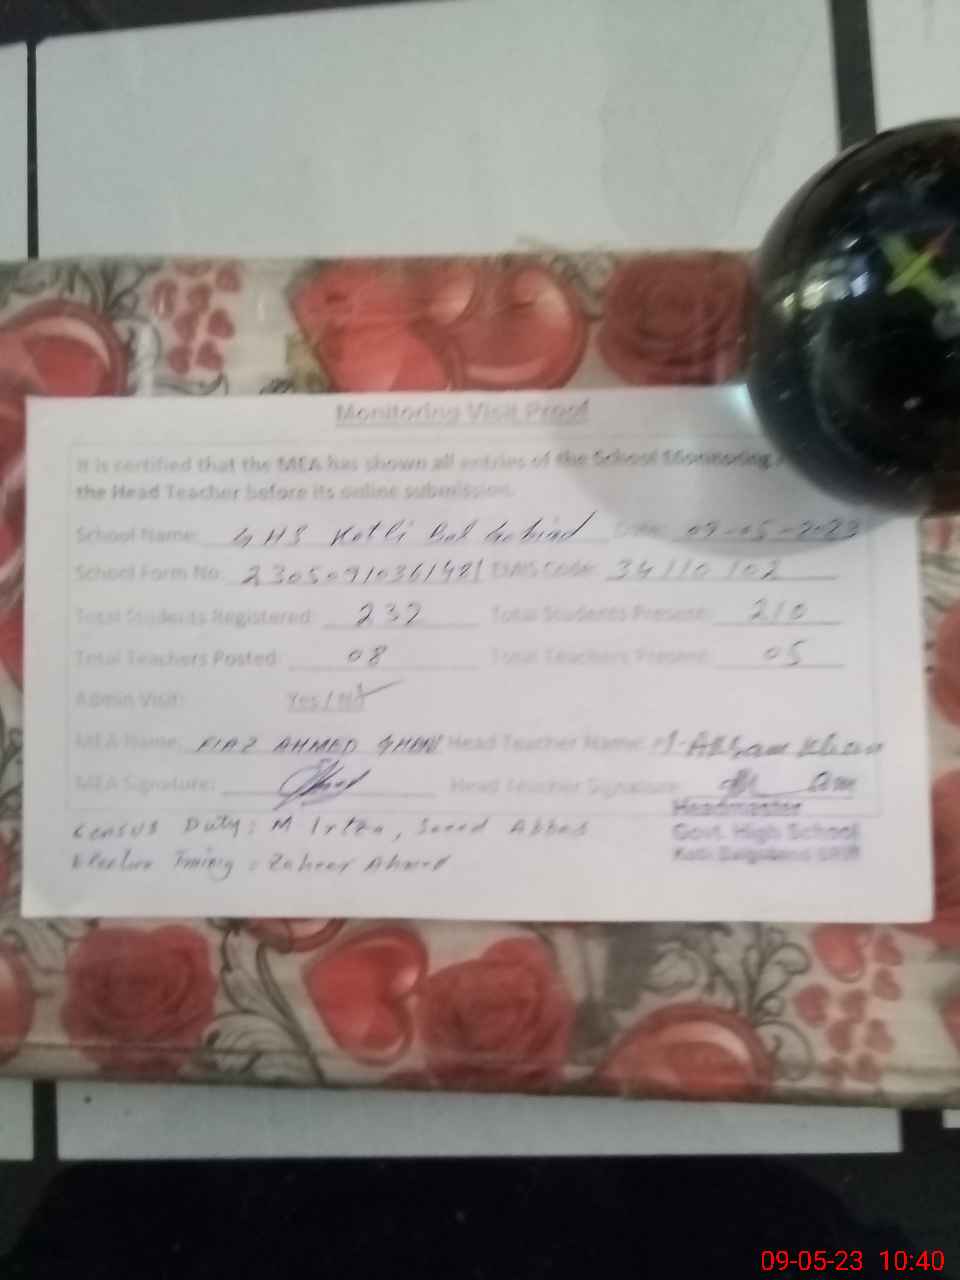 Monitoring Visit Proof
It is certified that the MEA has shown all entries of the School Monitoring
the Head Teacher before its online submission.
School Name: GHS Kotli Bal Gobind Date: 09-05-2023
School Form No: 23050910361481 EMIS Code: 34110102
Total Students Registered: 232 Total Students Present: 210
Total Teachers Posted: 08 Total Teachers Present: 05
Admin Visit: Yes / No
MEA Name: FIAZ AHMED GHANI Head Teacher Name: M. Akram Khan
MEA Signature: Head Teacher Signature:
Headmaster
Census Duty: M Irtza, Saeed Abbas
Govt. High School
Election Traning : Zaheer Ahmed
Kotli
09-05-23 10:40